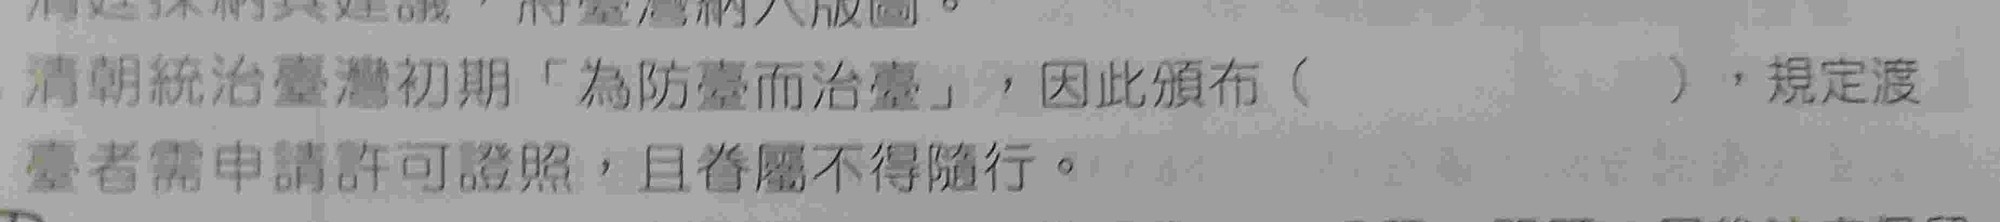 清廷採納其建議，將臺灣納入版圖。
清朝統治臺灣初期「為防臺而治臺」，因此頒布（　　　　　　），規定渡
臺者需申請許可證照，且眷屬不得隨行。